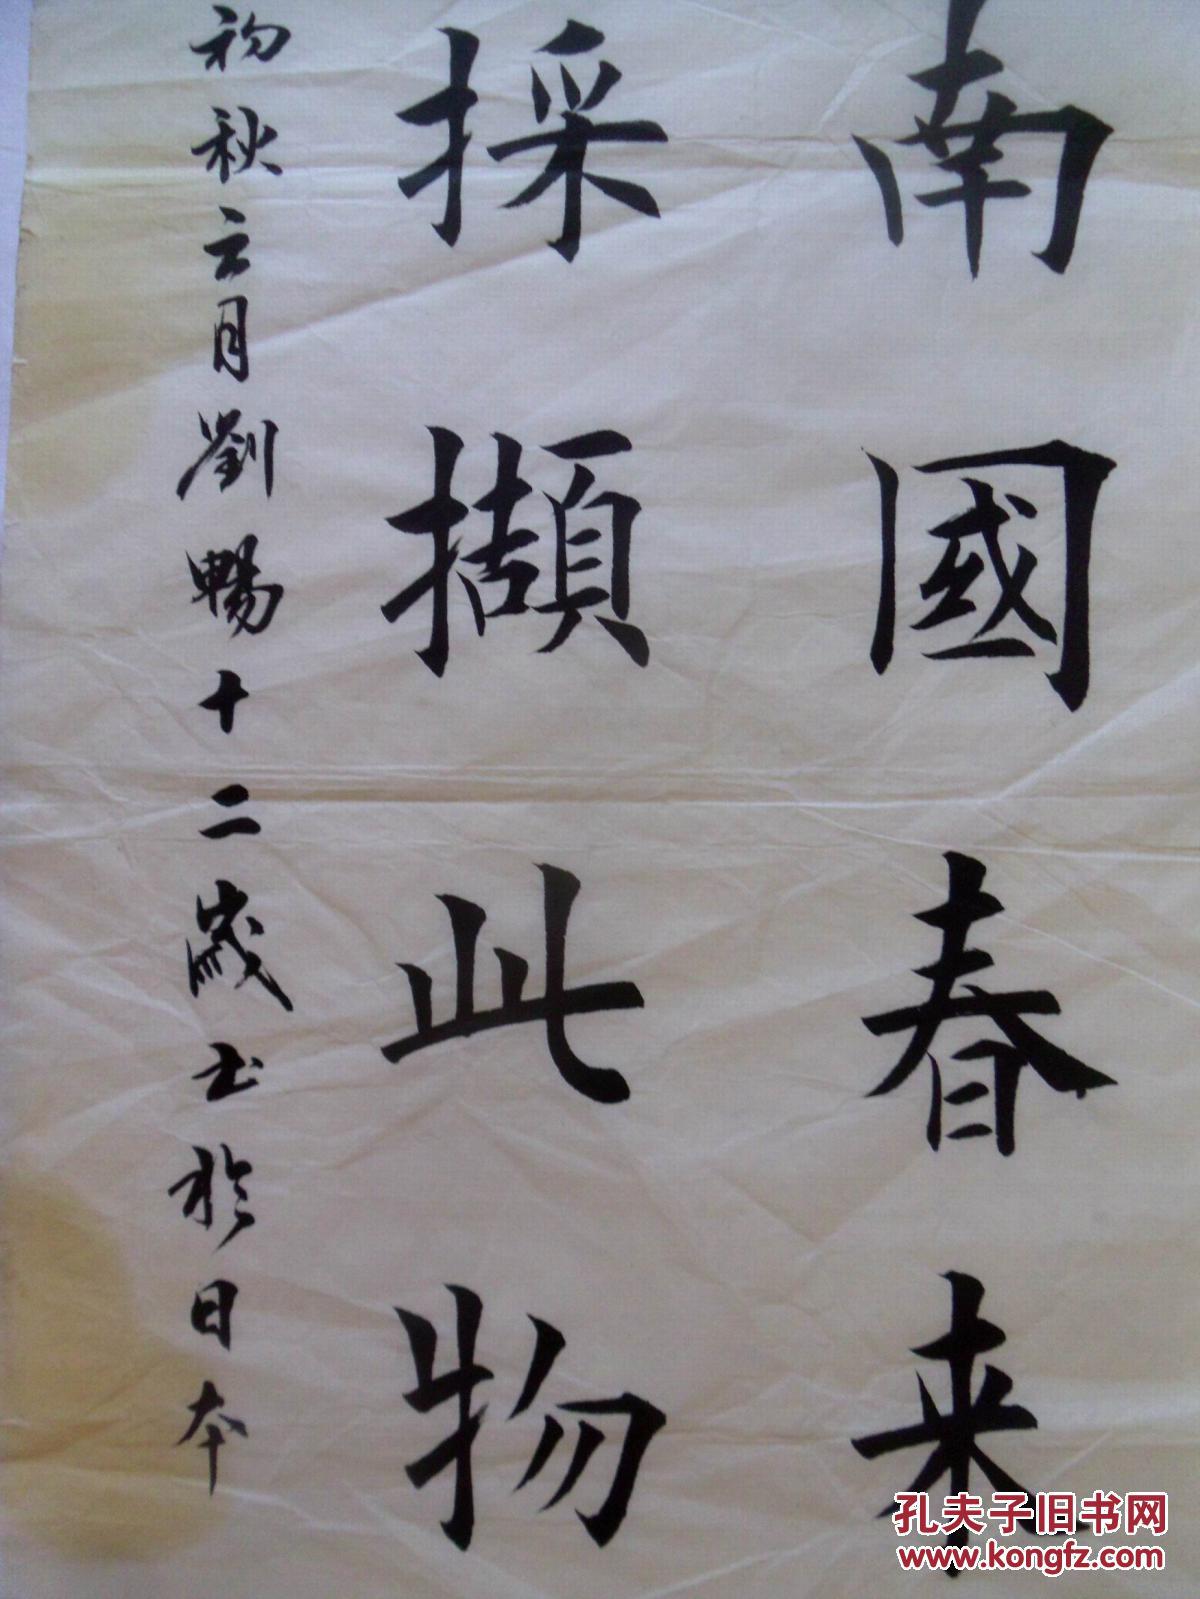 南國春来
採擷此物
初秋六月劉暢十二歲书於日本
孔夫子旧书网
www.kongfz.com